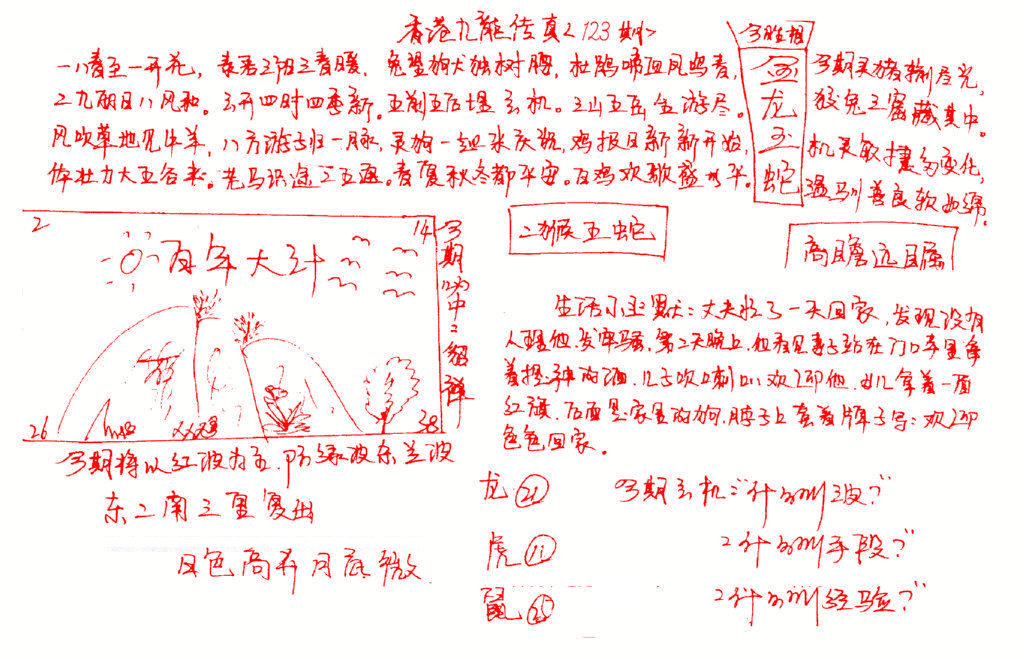 香港九龍传真<123期>
一八春至一开花，春君三阳三春暖，兔望狗犬独树腾，杜鹃啼血凤鸣春，
二九明日八风和。云开四时四季新。五前五后堪玄机。三山五岳金游尽。
风吹草地见牛羊，八方游子归一脉，灵狗一组来庆祝，鸡报日新新开始，
体壮力大五谷来。老马识途二五通。春夏秋冬都平安。百鸡欢歌盛水平。
今期灵猪捌尽光，
狡兔三窟藏其中。
机灵敏捷多变化，
温驯善良软如绵。
金龙玉蛇
二猴五蛇
高瞻远瞩
2
14
百年大计
26
38
今期 中二 组 詳
今期将以红波为主，防绿波东兰波
东二南三重复出
日色高升月底微
生活小幽默：丈夫忙了一天回家，发现没有
人理他，发牢骚，第二天晚上，他看见妻子站在门口手里拿
着 酒，儿子吹喇叭欢迎他，女儿拿着一面
红旗，后面是家里的狗，脖子上套着牌子写：欢迎
爸爸回家。
龙 ㉑
虎 ⑪
鼠 ㉕
今期玄机："什么叫 波？"
2什么叫手段？"
2什么叫经验？"